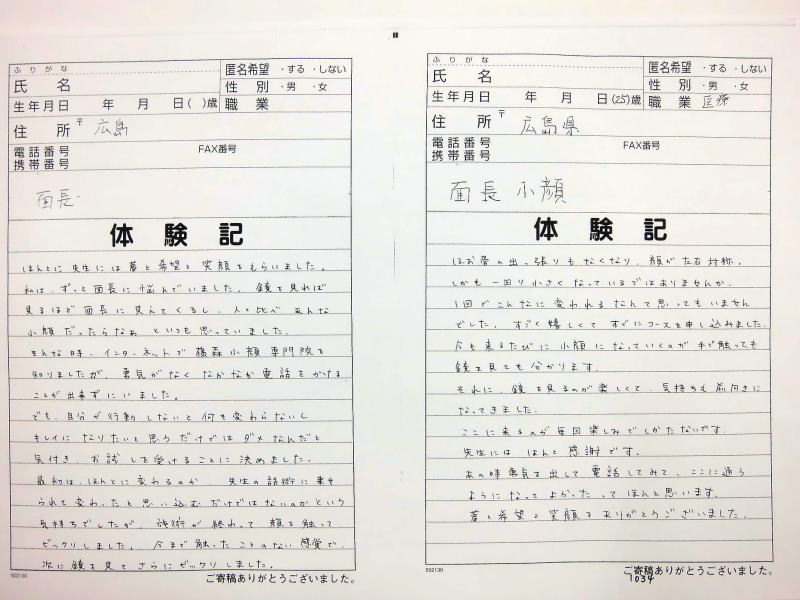 ふりがな
氏 名
匿名希望 ・する ・しない
性 別 ・男 ・女
生年月日 年 月 日( )歳
職 業
住 所 〒 広島
電話番号
携帯番号
FAX番号
面長
体験記
ほんとに先生には夢と希望と笑顔をもらいました。
私は、ずっと面長に悩んでいました。鏡を見れば
見るほど面長に見えてくるし、人と比べ あんな
小顔だったらなぁ といつも思っていました。
そんな時、インターネットで 藤森小顔専門院を
知りましたが、勇気がなく なかなか電話をかける
ことが出来ずにいました。
でも、自分が行動しないと何も変わらないし
キレイになりたいと思うだけではダメなんだと
気付き、お試しを受けることに決めました。
最初は、ほんとに変わるのか、先生の話術に乗せ
られて変わったと思い込むだけではないのかという
気持ちでしたが、施術が終わって顔を触って
ビックリしました。今まで触ったことのない感覚で、
次に鏡を見てさらにビックリしました。
502130
ご寄稿ありがとうございました。
ふりがな
氏 名
匿名希望 ・する ・しない
性 別 ・男 ・女
生年月日 年 月 日(25)歳
職 業 医療
住 所 〒 広島県
電話番号
携帯番号
FAX番号
面長 小顔
体験記
ほお骨の出っ張りもなくなり、顔が左右対称、
しかも一回り小さくなっているではありませんか。
1回でこんなに変われるなんて思ってもいません
でした。すごく嬉しくてすぐにコースを申し込みました。
今も来るたびに小顔になっていくのが手で触っても
鏡を見ても分かります。
それに、鏡を見るのが楽しくて、気持ちも前向きに
なってきました。
ここに来るのが毎回楽しみでしかたないです。
先生には ほんと感謝です。
あの時勇気を出して電話してみて、ここに通う
ようになってよかったってほんと思います。
夢と希望と笑顔をありがとうございました。
502130
ご寄稿ありがとうございました。
1034